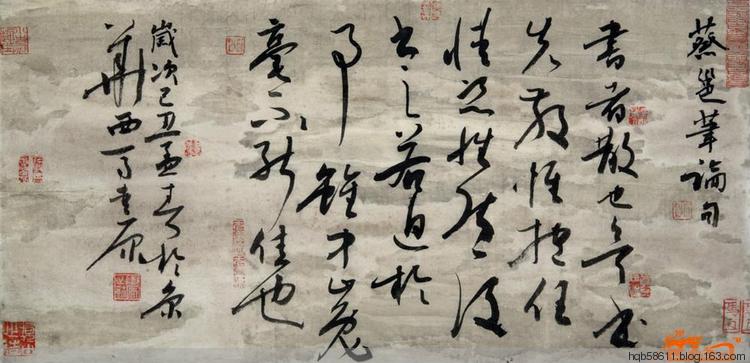 蔡邕筆論句
書者散也欲書
先散懷抱任
情恣性然後
書之若迫於
事雖中山兔
毫不能佳也
歲次己丑孟春於京
華西
hqb58611.blog.163.com